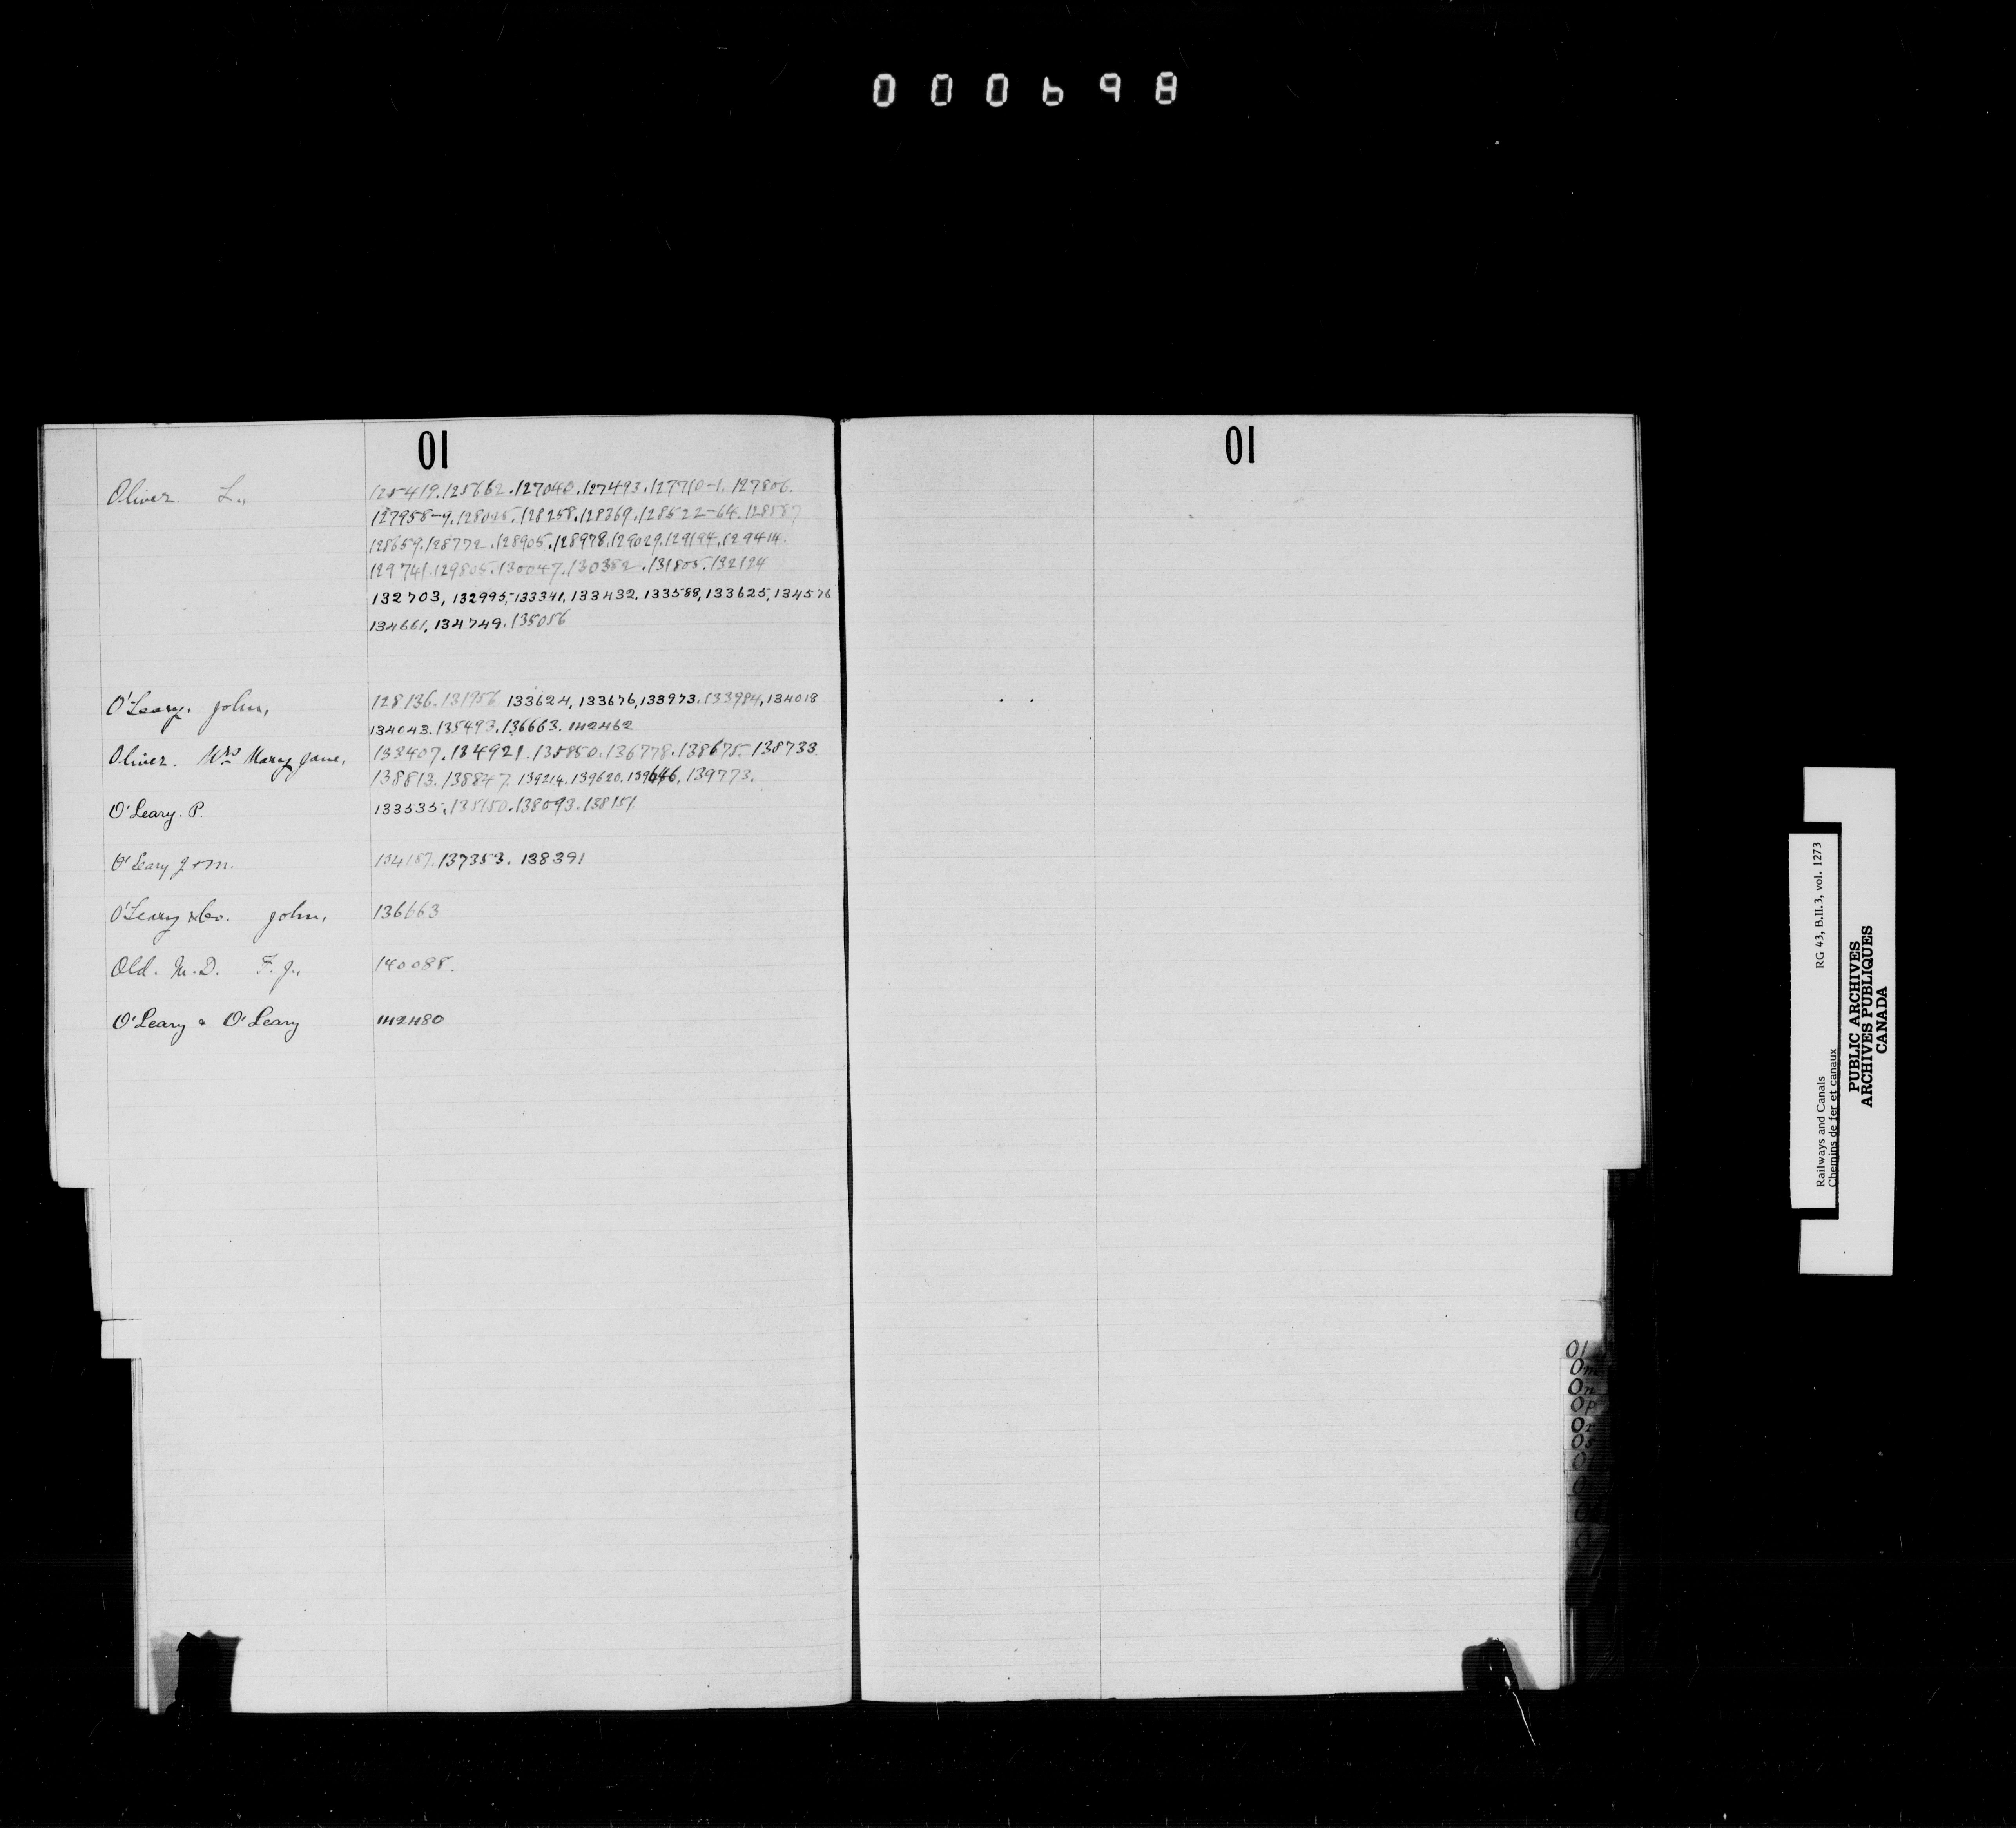 000698
Ol
Oliver. L.,
125419.125662.127040.127493.127710-1.127806.
127958-9.128095.128258.128369.128522-64.128587
128659.128772.128905.128978.129029.129194.129414.
129741.129805.130047.130382.131805.132124
132703, 132995, 133341, 133432, 133588, 133625, 134576
134661, 134749.135056
O'Leary. John,
128136.131956 133624, 133676, 133973.133984, 134018
134043.135493.136663. 142462
Oliver. Mrs Mary Jane,
133407.134921.135850.136778.138675.138733
138813.138847.139214.139620.139646.139773.
O'Leary. P.
133535.135150.138093.138151.
O'Leary J & M.
134157.137353. 138391
O'Leary & Co. John,
136663
Old. M.D. F. J.,
140088.
O'Leary & O'Leary
142480
Ol
Ol
Om
On
Op
Or
Os
Railways and Canals RG 43, B.II.3, vol. 1273
Chemins de fer et canaux
PUBLIC ARCHIVES
ARCHIVES PUBLIQUES
CANADA